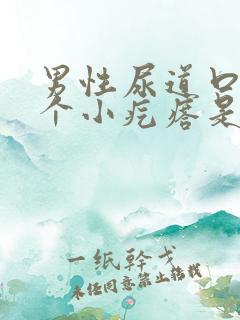 男性尿道口
个小疙瘩是
一纸斡戈
未经同意禁止搭载